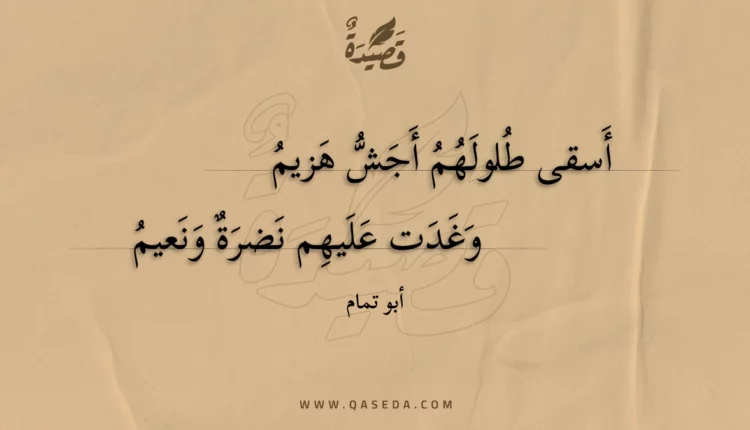 قَصِيدَةٌ
أَسقى طُلولَهُمُ أَجَشُّ هَزيمُ
وَغَدَت عَلَيهِم نَضرَةٌ وَنَعيمُ
أبو تمام
WWW.QASEDA.COM